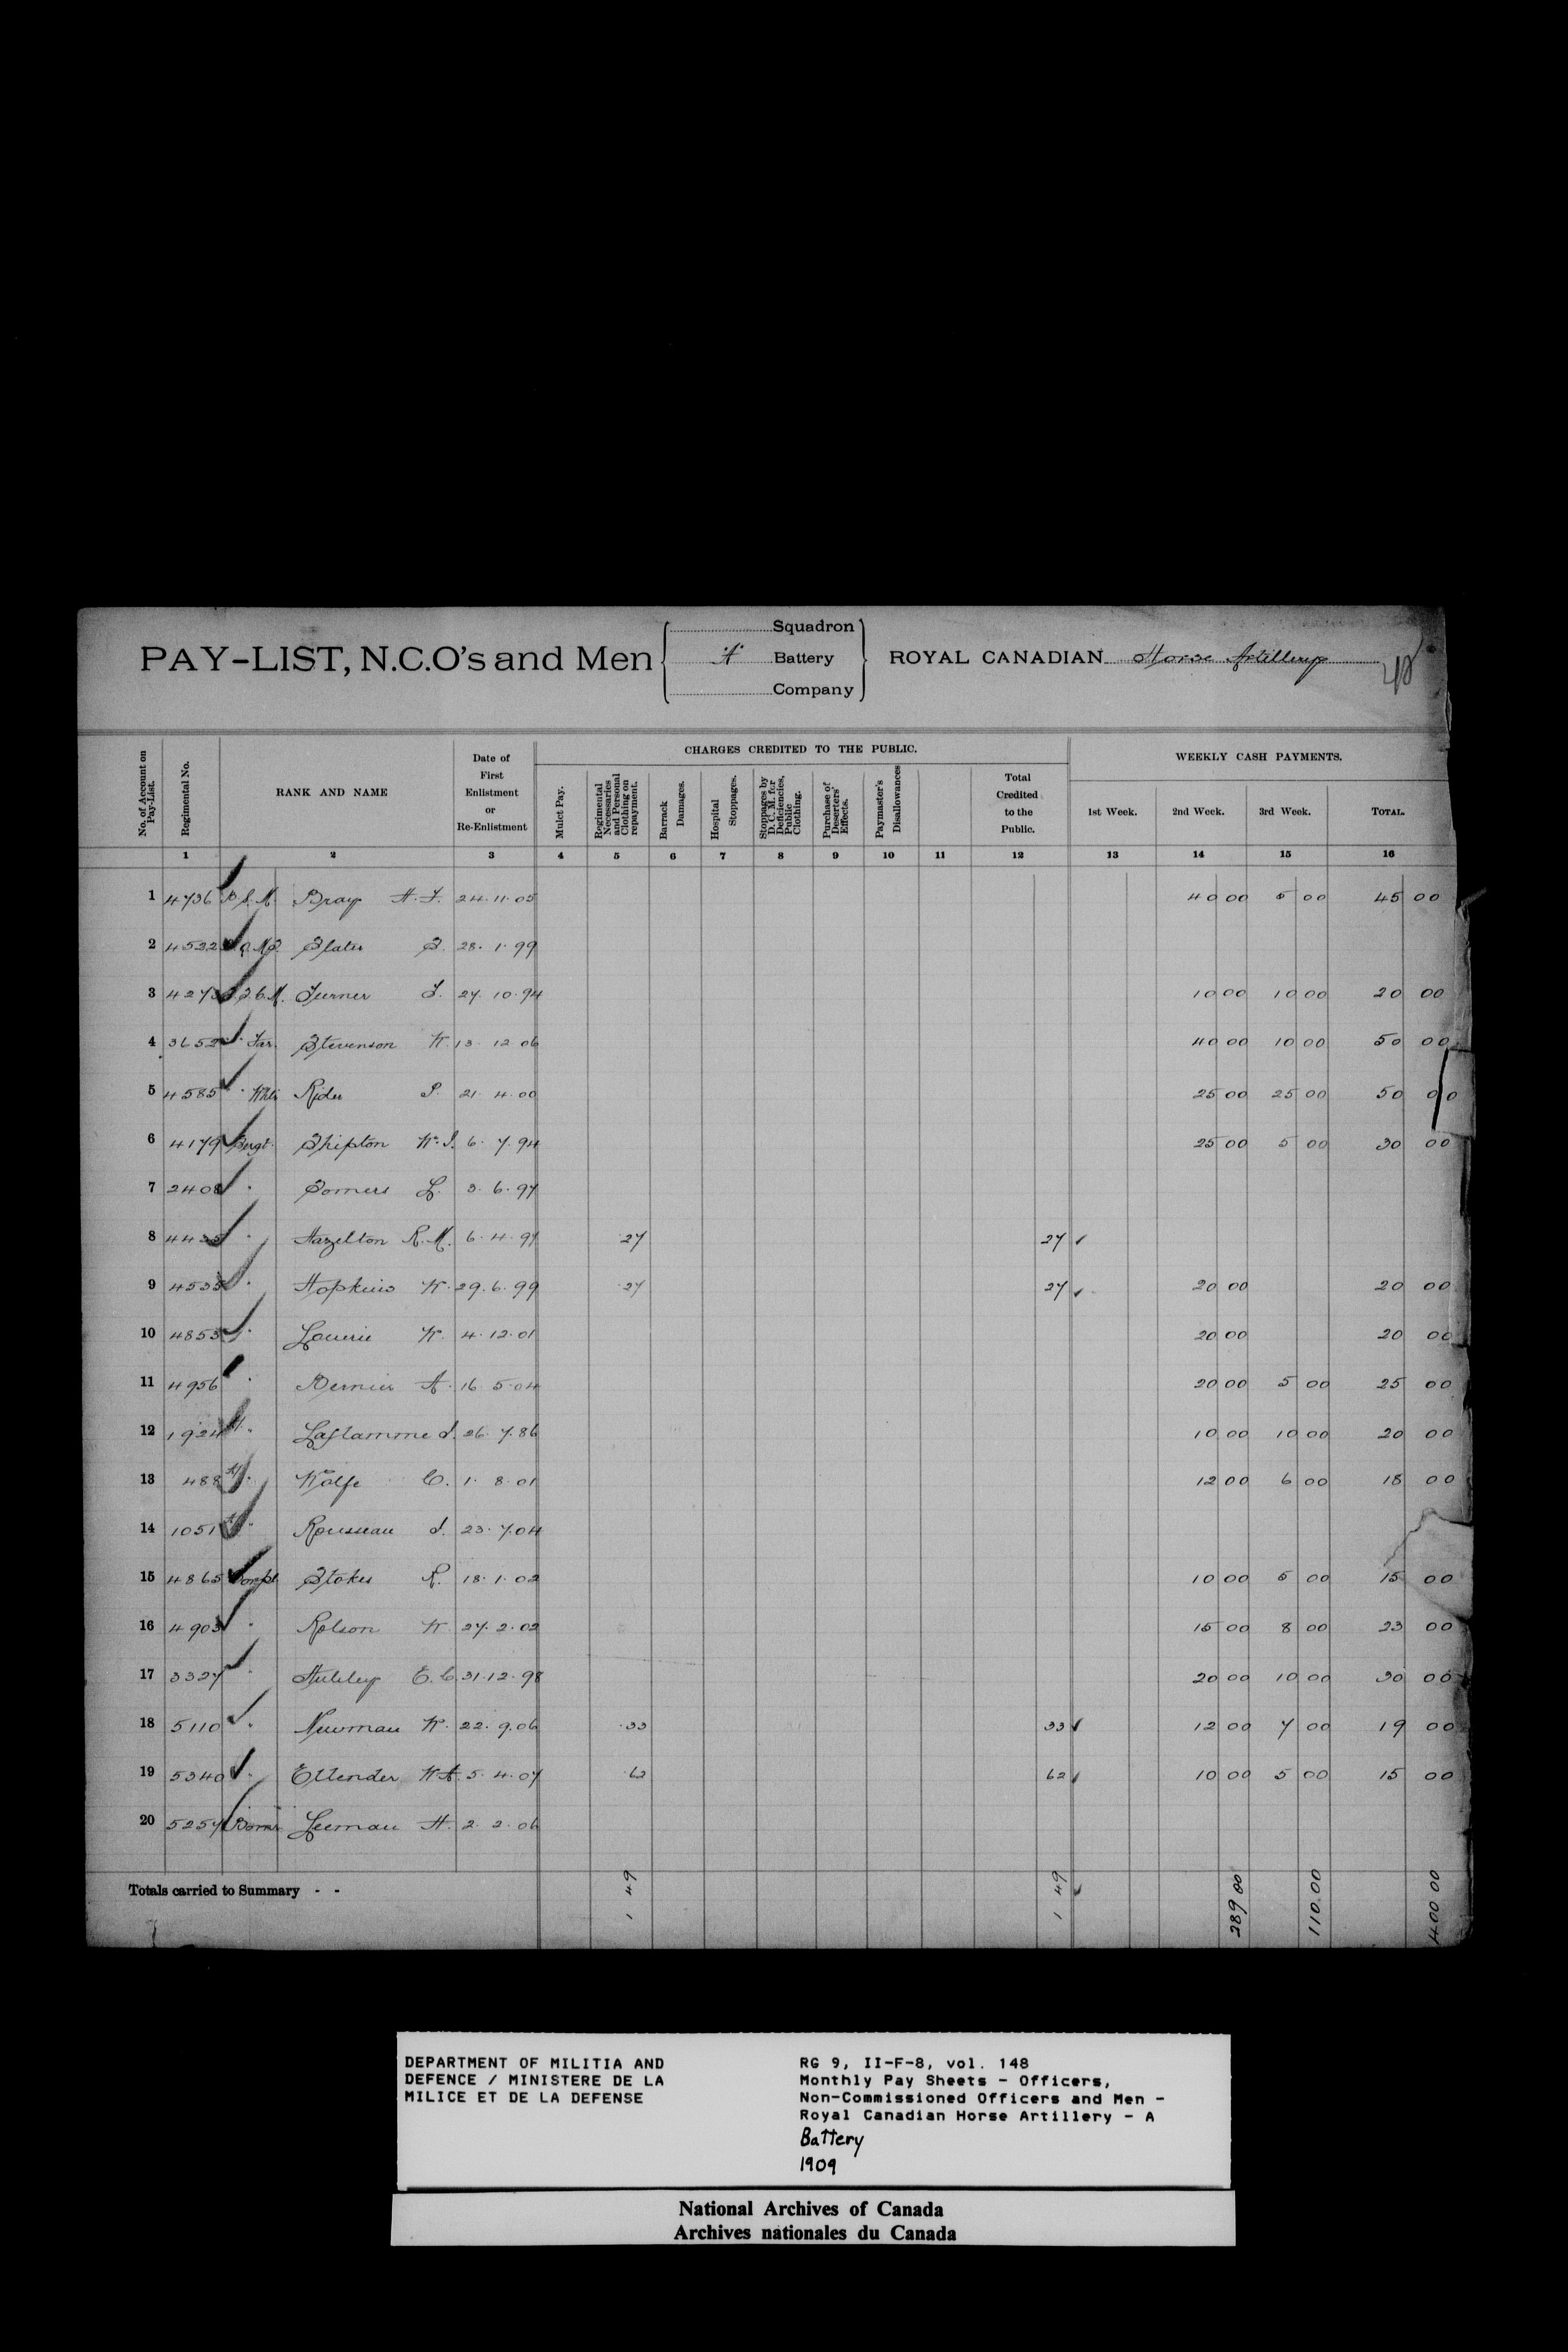 PAY-LIST, N.C.O's and Men
Squadron
"A" Battery
Company
ROYAL CANADIAN Horse Artillery
No. of Account on Pay-List.
Regimental No.
RANK AND NAME
Date of First Enlistment or Re-Enlistment
CHARGES CREDITED TO THE PUBLIC.
Mulct Pay.
Regimental Necessaries and Personal Clothing on repayment.
Barrack Damages.
Hospital Stoppages.
Stoppages by D. C. M. for Deficiencies, Public Clothing.
Purchase of Deserters' Effects.
Paymaster's Disallowances
Total Credited to the Public.
WEEKLY CASH PAYMENTS.
1st Week. 2nd Week. 3rd Week. TOTAL.
1 2 3 4 5 6 7 8 9 10 11 12 13 14 15 16
1 4736 B.S.M. Bray H.F. 24.11.05 40 00 5 00 45 00
2 4522 Slater S. 28.1.99
3 Turner F. 27.10.94 10 00 10 00 20 00
4 3652 " Far. Stevenson W. 13 12 06 40 00 10 00 50 00
5 4585 " Whlr Rider P. 21 4.00 25 00 25 00 50 00
6 4179 Sergt. Shipton W.S. 6.7.94 25 00 5 00 30 00
7 2408 " Somers L. 3.6.97
8 " Hazelton R.M. 6.4.97 27 27
9 4535 " Hopkins W. 29.6.99 27 27 20 00 20 00
10 4853 " Lowrie W. 4.12.01 20 00 20 00
11 4956 " Bernier A. 16 5.04 20 00 5 00 25 00
12 1924 " Laflamme J. 26.7.86 10 00 10 00 20 00
13 488 " Wolfe C. 1.8.01 12 00 6 00 18 00
14 1051 " Rousseau J. 23.7.04
15 4865 Corpl Stokes R. 18.1.02 10 00 5 00 15 00
16 4903 " Rolson W. 27.2.02 15 00 8 00 23 00
17 3327 " E.C. 31.12.98 20 00 10 00 30 00
18 5110 " Newman W. 22.9.06 33 33 12 00 7 00 19 00
19 5340 " Ettender W.A. 5.4.07 62 62 10 00 5 00 15 00
20 5257 Bomr Leeman H. 2.2.06
Totals carried to Summary - - 1 49 1 49 289 00 110.00 400 00
DEPARTMENT OF MILITIA AND
DEFENCE / MINISTERE DE LA
MILICE ET DE LA DEFENSE
RG 9, II-F-8, vol. 148
Monthly Pay Sheets - Officers,
Non-Commissioned Officers and Men -
Royal Canadian Horse Artillery - A
Battery
1909
National Archives of Canada
Archives nationales du Canada